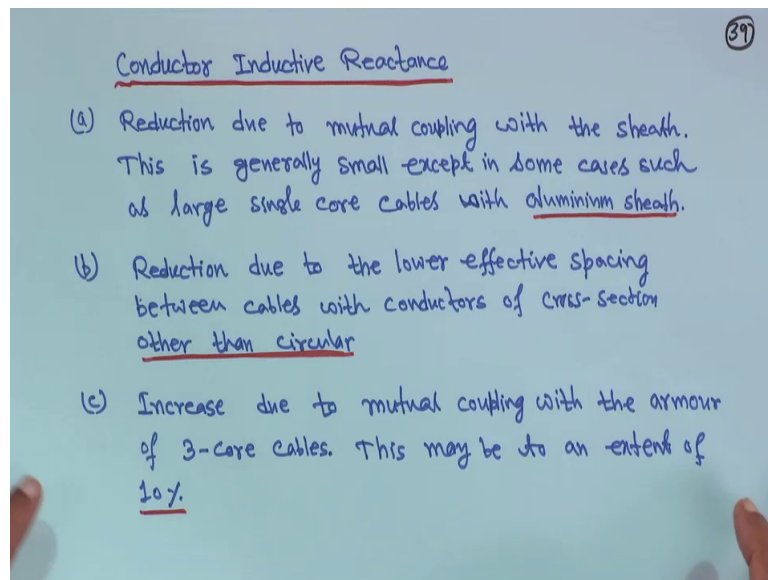 39
Conductor Inductive Reactance
(a) Reduction due to mutual coupling with the sheath.
This is generally small except in some cases such
as large single core cables with aluminium sheath.
(b) Reduction due to the lower effective spacing
between cables with conductors of cross-section
other than circular
(c) Increase due to mutual coupling with the armour
of 3-core cables. This may be to an extent of
10%.